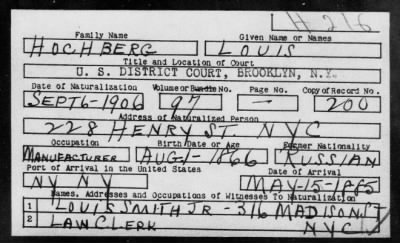 H 216
Family Name Given Name or Names
HOCHBERG LOUIS
Title and Location of Court
U. S. DISTRICT COURT, BROOKLYN, N.Y.
Date of Naturalization Volume or Bundle No. Page No. Copy of Record No.
SEPT 6-1906 97 — 200
Address of Naturalized Person
228 HENRY ST. NYC
Occupation Birth Date or Age Former Nationality
MANUFACTURER AUG 1-1866 RUSSIAN
Port of Arrival in the United States Date of Arrival
NY NY MAY-15-1885
Names, Addresses and Occupations of Witnesses To Naturalization
1 LOUIS SMITH JR - 316 MADISON ST
2 LAW CLERK NYC